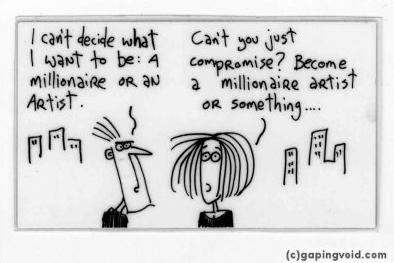 I can't decide what
I want to be: A
millionaire or an
Artist.
Can't you just
compromise? Become
a millionaire artist
or something....
(c)gapingvoid.com